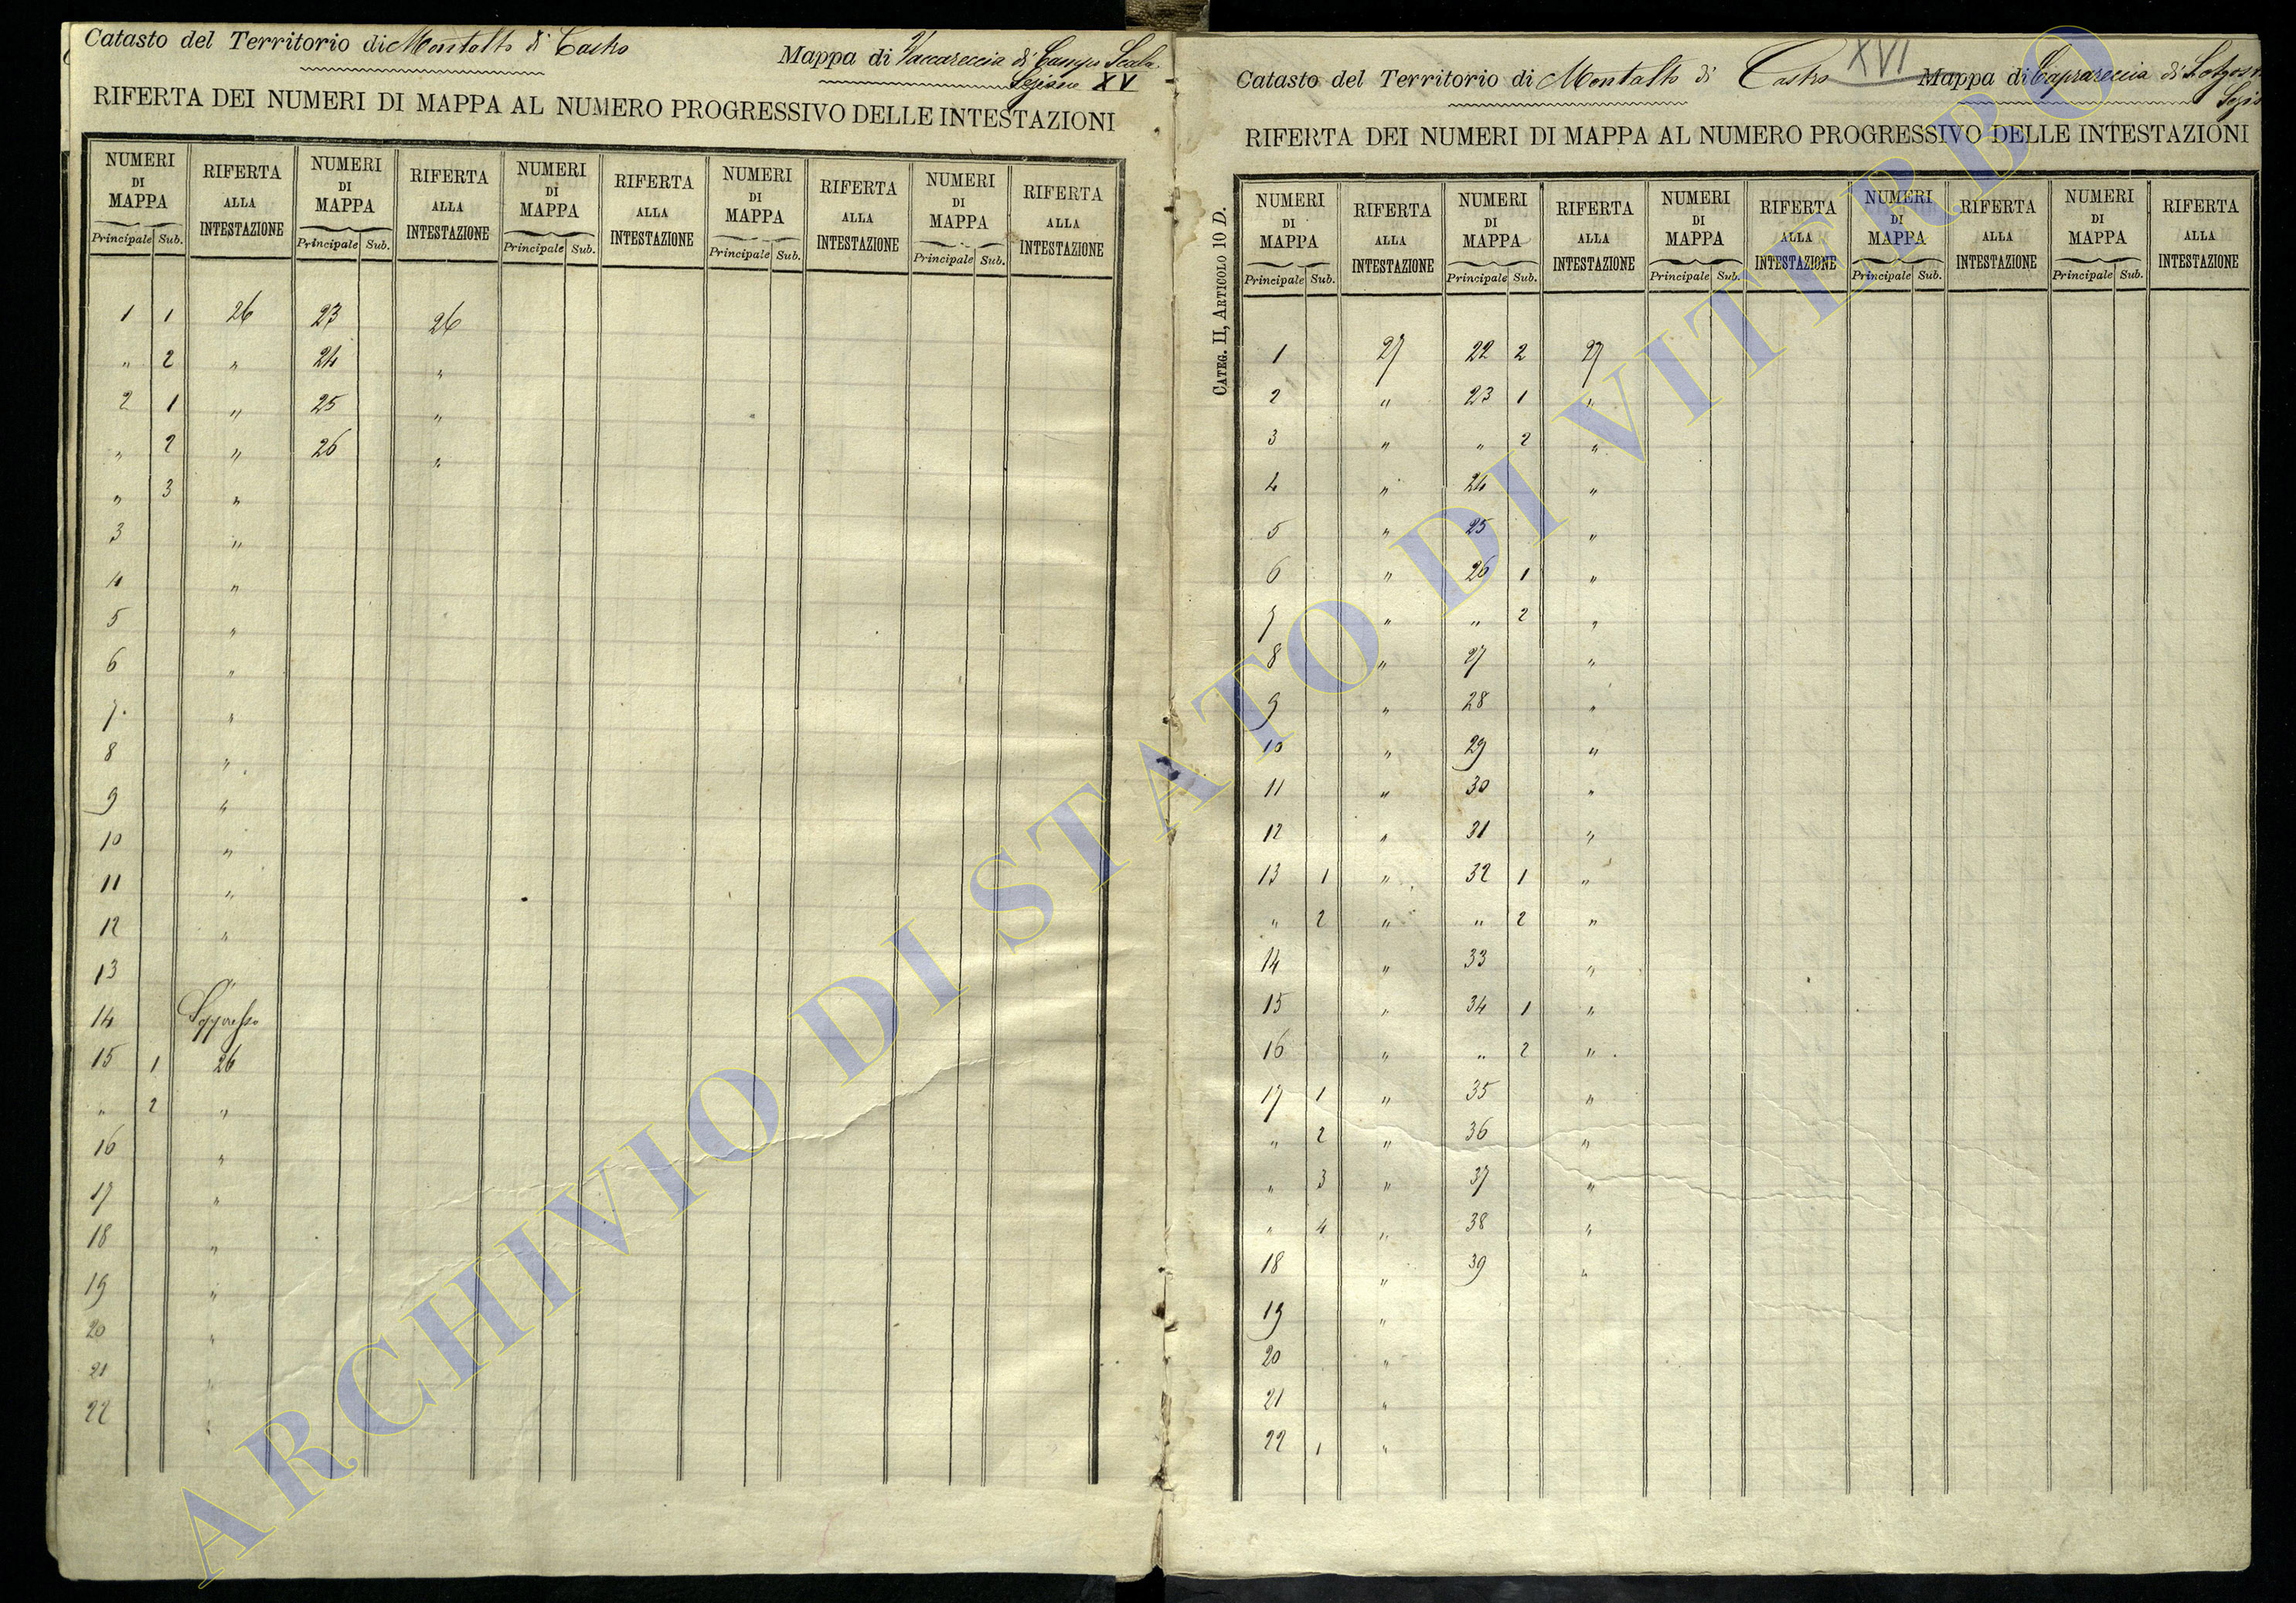 Catasto del Territorio di Montalto di Castro Mappa di Vaccareccia di Campo Scala
Sezione XV
RIFERTA DEI NUMERI DI MAPPA AL NUMERO PROGRESSIVO DELLE INTESTAZIONI
NUMERI DI MAPPA RIFERTA ALLA INTESTAZIONE NUMERI DI MAPPA RIFERTA ALLA INTESTAZIONE NUMERI DI MAPPA RIFERTA ALLA INTESTAZIONE NUMERI DI MAPPA RIFERTA ALLA INTESTAZIONE NUMERI DI MAPPA RIFERTA ALLA INTESTAZIONE
Principale Sub. Principale Sub. Principale Sub. Principale Sub. Principale Sub.
1 1 26 23 26
" 2 " 24 "
2 1 " 25 "
" 2 " 26 "
" 3 "
3 "
4 "
5 "
6 "
7 "
8 "
9 "
10 "
11 "
12 "
13 "
14 Soppresso
15 1 26
" 2 "
16 "
17 "
18 "
19 "
20 "
21 "
22 "
XVI
Catasto del Territorio di Montalto di Castro Mappa di Caprareccia di
RIFERTA DEI NUMERI DI MAPPA AL NUMERO PROGRESSIVO DELLE INTESTAZIONI
CATEG. II, ARTICOLO 10 D.
NUMERI DI MAPPA RIFERTA ALLA INTESTAZIONE NUMERI DI MAPPA RIFERTA ALLA INTESTAZIONE NUMERI DI MAPPA RIFERTA ALLA INTESTAZIONE NUMERI DI MAPPA RIFERTA ALLA INTESTAZIONE NUMERI DI MAPPA RIFERTA ALLA INTESTAZIONE
Principale Sub. Principale Sub. Principale Sub. Principale Sub. Principale Sub.
1 27 22 2 27
2 " 23 1 "
3 " " 2 "
4 " 24 "
5 " 25 "
6 " 26 1 "
7 " " 2 "
8 " 27 "
9 " 28 "
10 " 29 "
11 " 30 "
12 " 31 "
13 1 " 32 1 "
" 2 " " 2 "
14 " 33 "
15 " 34 1 "
16 " " 2 "
17 1 " 35 "
" 2 " 36 "
" 3 " 37 "
" 4 " 38 "
18 " 39 "
19 "
20 "
21 "
22 1 "
ARCHIVIO DI STATO DI VITERBO